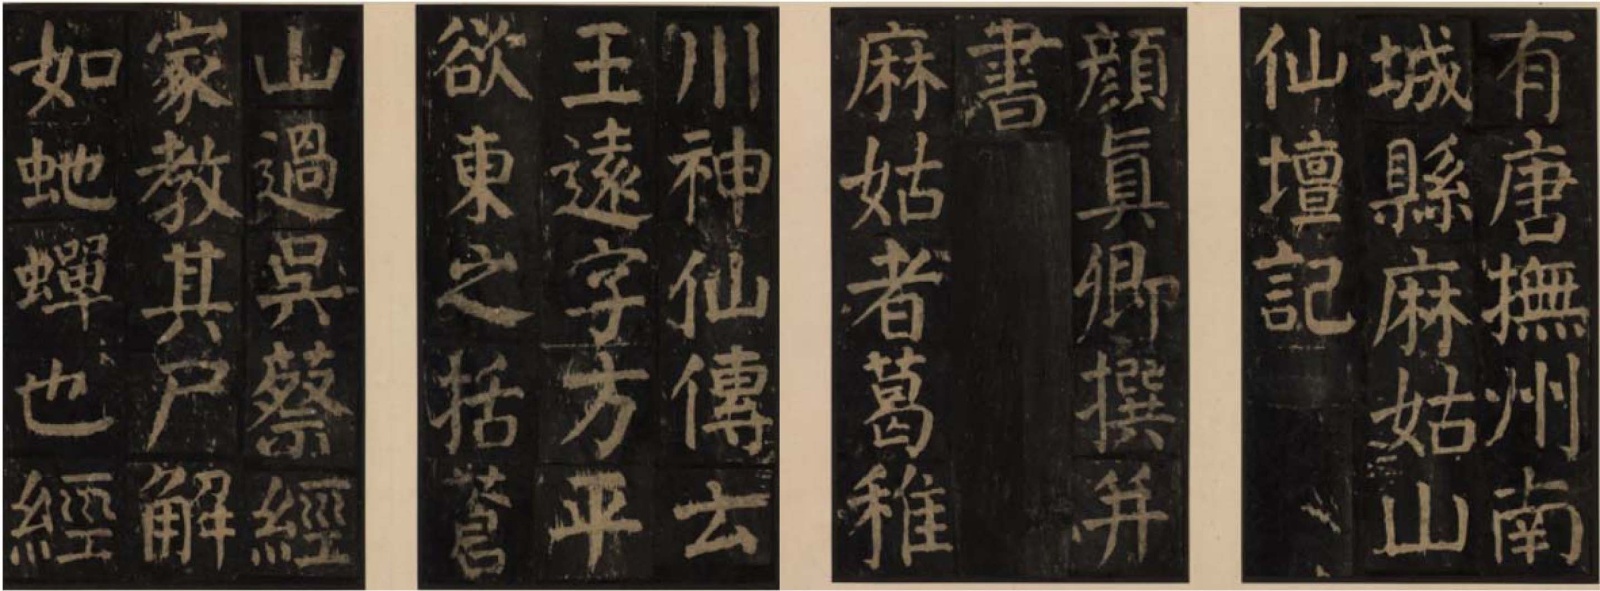 有唐撫州南
城縣麻姑山
仙壇記
顏眞卿撰并
書
麻姑者葛稚
川神仙傳云
王遠字方平
欲東之括蒼
山過吳蔡經
家教其尸解
如虵蟬也經